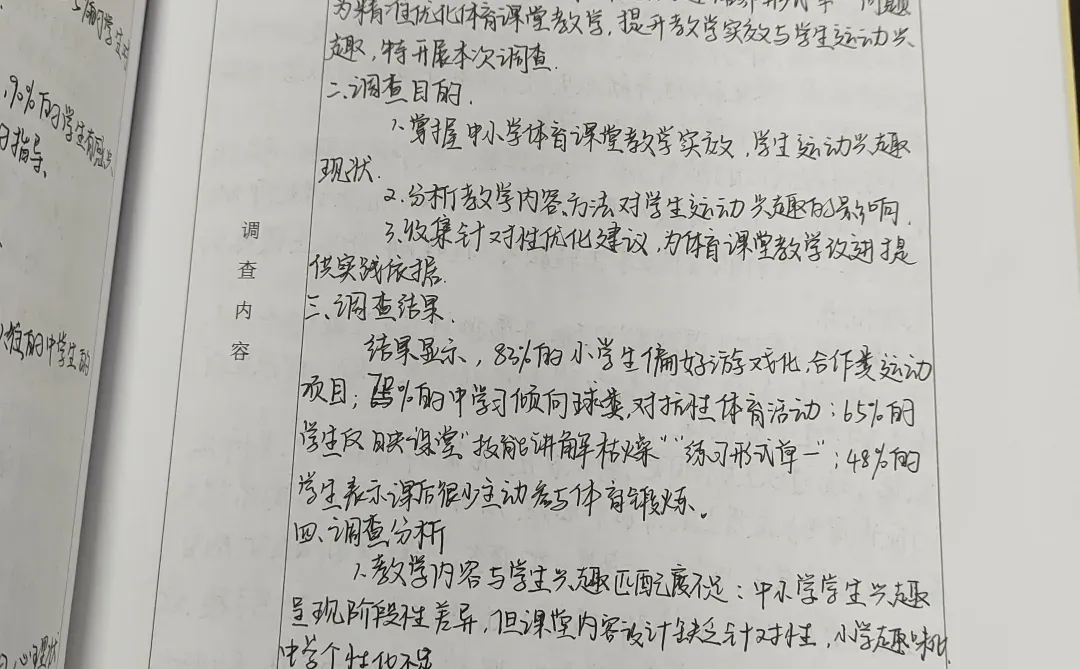 的学生有感兴
,90%的学生有感兴
的指导、
的中学生的
调
查
内
容
问题
为精准优化体育课堂教学,提升教学实效与学生运动兴
趣,特开展本次调查.
二、调查目的.
1.掌握中小学体育课堂教学实效,学生运动兴趣
现状.
2.分析教学内容、方法对学生运动兴趣的影响.
3.收集针对性优化建议,为体育课堂教学改进提
供实践依据.
三、调查结果.
结果显示,83%的小学生偏好游戏化、合作类运动
项目;%的中学习倾向球类、对抗性体育活动;65%的
学生反映课堂“技能讲解枯燥”“练习形式单一”;48%的
学生表示课后很少主动参与体育锻炼。
四、调查分析
1.教学内容与学生兴趣匹配度不足:中小学学生兴趣
呈现阶段性差异,但课堂内容设计缺乏针对性,小学趣味化
中学个性化不足